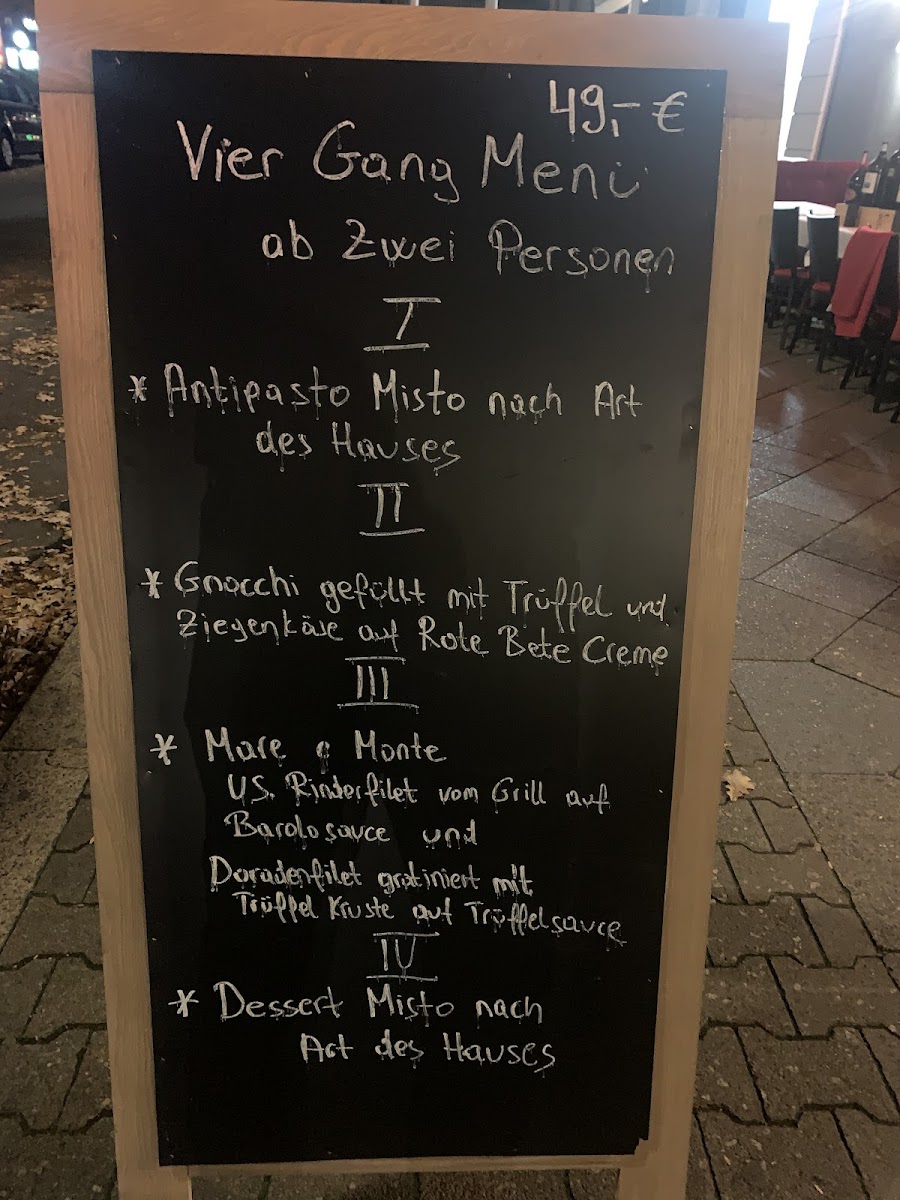 49,- €
Vier Gang Menü
ab Zwei Personen
I
* Antipasto Misto nach Art
des Hauses
II
* Gnocchi gefüllt mit Trüffel und
Ziegenkäse auf Rote Bete Creme
III
* Mare e Monte
US. Rinderfilet vom Grill auf
Barolosauce und
Doradenfilet gratiniert mit
Trüffel Kruste auf Trüffelsauce
IV
* Dessert Misto nach
Art des Hauses